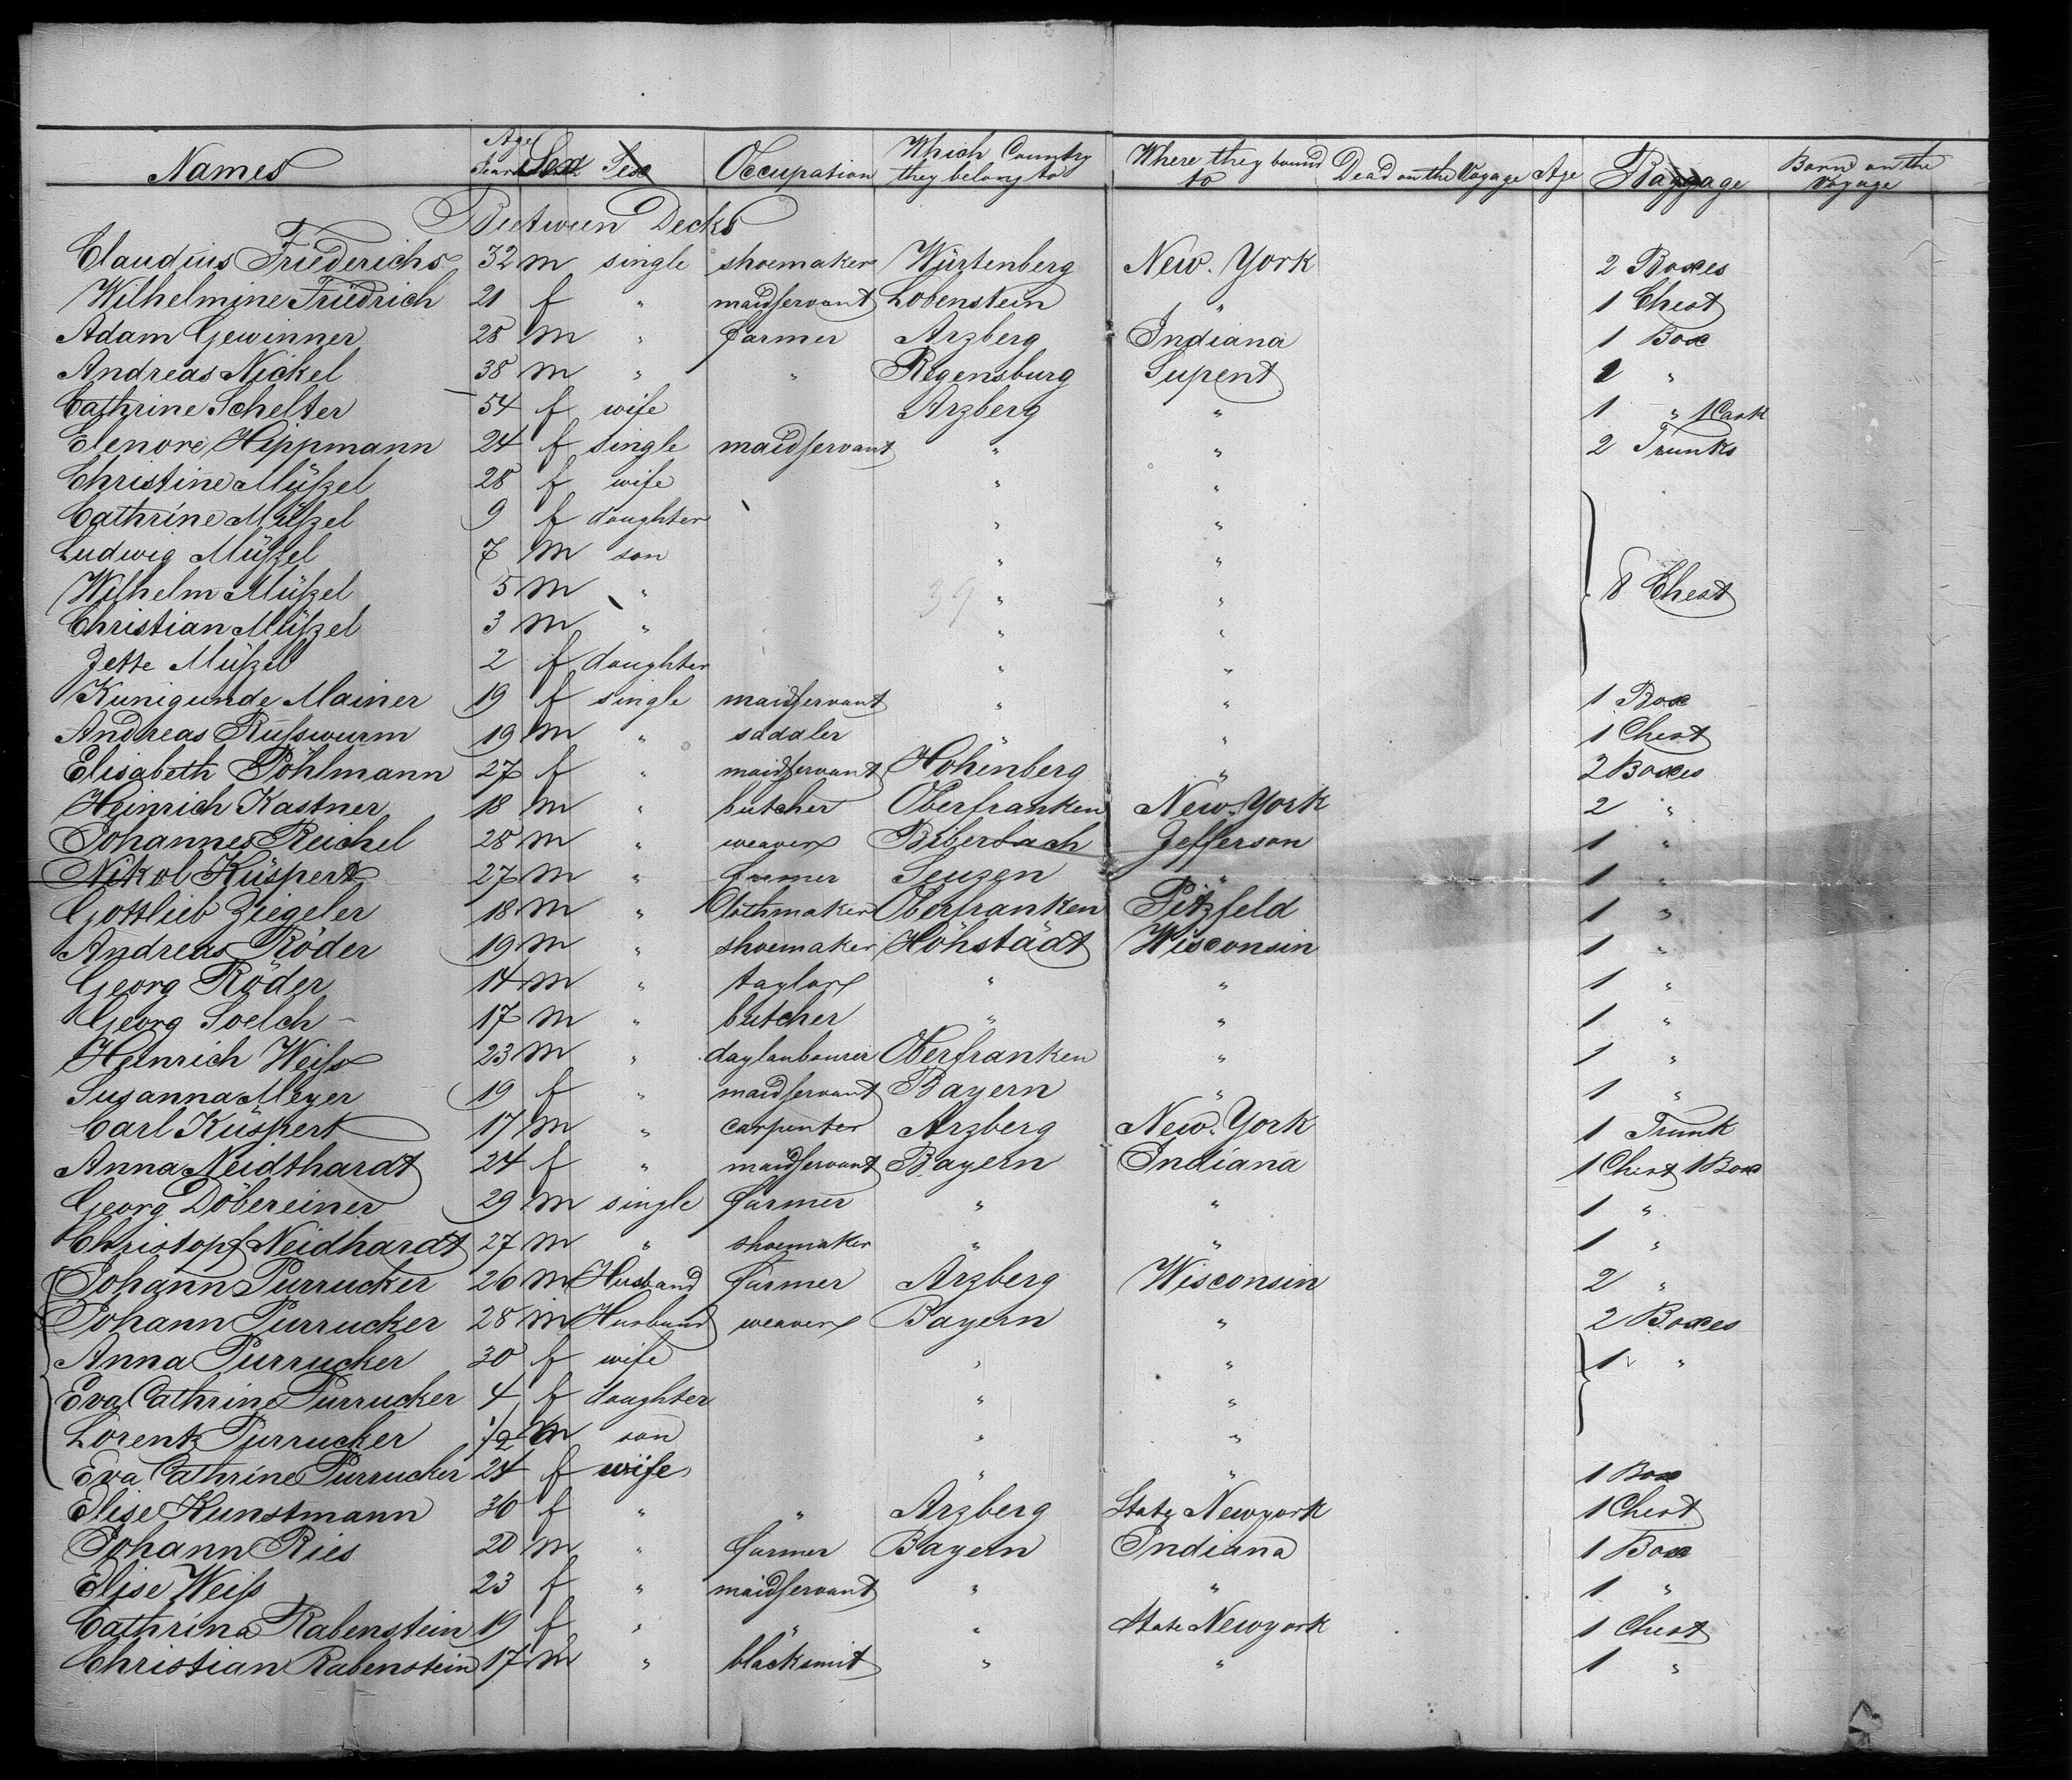 Names Age Years Sex Sex Occupation Which Country they belong to Where they bound to Dead on the Voyage Age Baggage Born on the Voyage
Between Decks
Claudius Friederichs 32 m single shoemaker Würtenberg New. York 2 Boxes
Wilhelmine Friedrich 21 f " maidservant Lobenstein " 1 Chest
Adam Gewinner 28 m " farmer Arzberg Indiana 1 Box
Andreas Nickel 38 m " " Regensburg Supent 1 "
Cathrine Schelter 54 f wife Arzberg " 1 " 1 Cask
Elenore Hippmann 24 f single maidservant " " 2 Trunks
Christine Müßel 28 f wife " "
Cathrine Müßel 9 f daughter " "
Ludwig Müßel 7 m son " "
Wilhelm Müßel 5 m " 39 " " 8 Chest
Christian Müßel 3 m " " "
Jette Müßel 2 f daughter " "
Kunigunde Mainer 19 f single maidservant " " 1 Box
Andreas Rußwurm 19 m " sadaler " " 1 Chest
Elisabeth Pöhlmann 27 f " maidservant Hohenberg " 2 Boxes
Heinrich Kastner 18 m " butcher Oberfranken New. York 2 "
Johannes Reichel 28 m " weaver Biberbach Jefferson 1 "
Nikol Küspert 27 m " farmer Seuzen " 1 "
Gottlieb Ziegeler 18 m " Clothmaker Oberfranken Pitzfeld 1 "
Andreas Röder 19 m " shoemaker Höhstädt Wisconsin 1 "
Georg Röder 14 m " taylor " " 1 "
Georg Soelch 17 m " butcher " " 1 "
Heinrich Weiß 23 m " daylaubourer Oberfranken " 1 "
Susanna Meyer 19 f " maidservant Bayern " 1 "
Carl Küspert 17 m " carpenter Arzberg New. York 1 Trunk
Anna Neidthardt 24 f " maidservant Bayern Indiana 1 Chest 1 Box
Georg Döbereiner 29 m single farmer " " 1 "
Christopf Neidhardt 27 m " shoemaker " " 1 "
Johann Purrucker 26 m Husband farmer Arzberg Wisconsin 2 "
Johann Purrucker 28 m Husband weaver Bayern " 2 Boxes
Anna Purrucker 30 f wife " " 1 "
Eva Cathrine Purrucker 4 f daughter " "
Lorentz Purrucker 1/2 m son " "
Eva Cathrine Purrucker 24 f wife " " 1 Box
Elise Kunstmann 36 f " " Arzberg State Newyork 1 Chest
Johann Ries 20 m " farmer Bayern Indiana 1 Box
Elise Weiß 23 f " maidservant " " 1 "
Cathrina Rabenstein 19 f " " " State Newyork 1 Chest
Christian Rabenstein 17 m " blacksmit " " 1 "